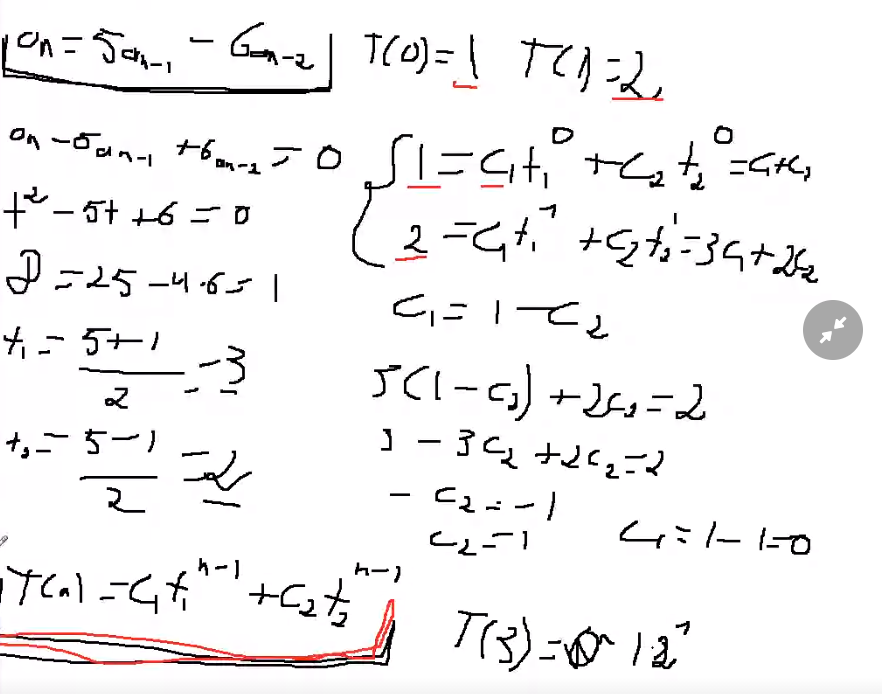 aₙ = 5aₙ₋₁ - 6aₙ₋₂ T(0) = 1 T(1) = 2
aₙ - 5aₙ₋₁ + 6aₙ₋₂ = 0
t² - 5t + 6 = 0
D = 25 - 4·6 = 1
t₁ = (5+1)/2 = 3
t₂ = (5-1)/2 = 2
T(n) = C₁t₁ⁿ⁻¹ + C₂t₂ⁿ⁻¹
{ 1 = C₁t₁⁰ + C₂t₂⁰ = C₁+C₂
2 = C₁t₁¹ + C₂t₂¹ = 3C₁ + 2C₂
C₁ = 1 - C₂
3(1 - C₂) + 2C₂ = 2
3 - 3C₂ + 2C₂ = 2
- C₂ = -1
C₂ = 1 C₁ = 1 - 1 = 0
T(3) =